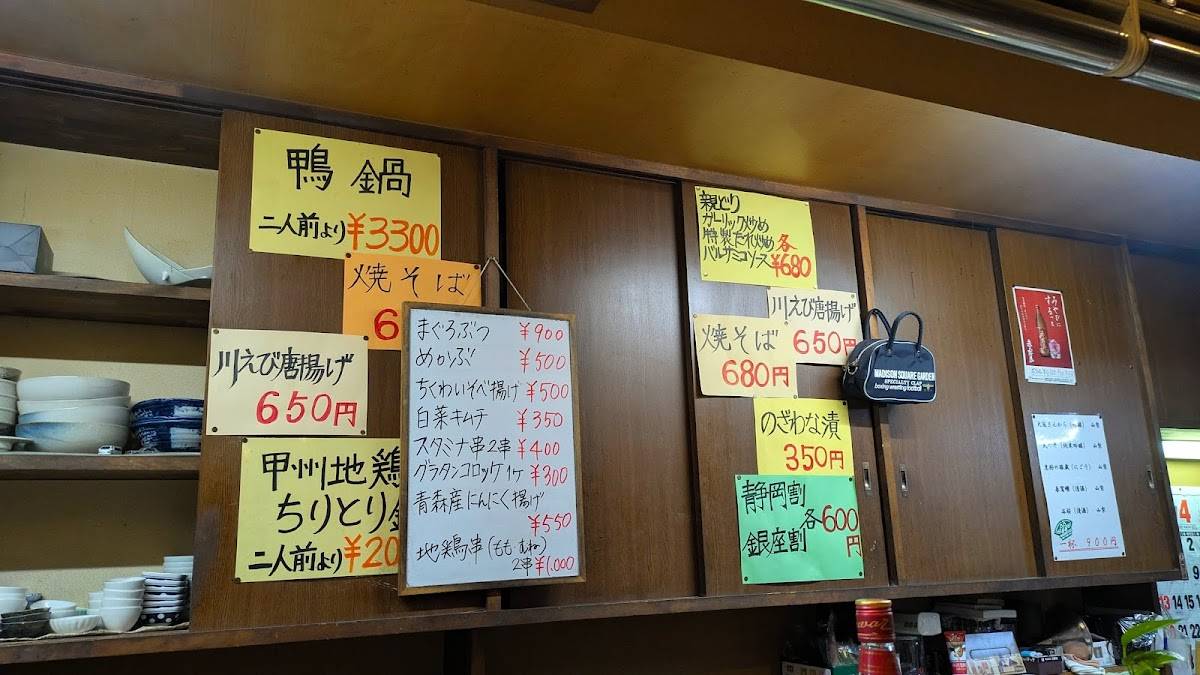 鴨鍋
二人前より¥3300
焼そば
6
川えび唐揚げ
650円
甲州地鶏
ちりとり
二人前より¥20
まぐろぶつ ¥900
めかぶ ¥500
ちくわいそべ揚げ ¥500
白菜キムチ ¥350
スタミナ串2串 ¥400
グラタンコロッケ1ケ ¥300
青森産にんにく揚げ
¥550
地鶏串(もも・むね)
2串¥1,000
親どり
ガーリック炒め
特製たれ炒め 各
バルサミコソース ¥680
川えび唐揚げ
650円
焼そば
680円
MADISON SQUARE GARDEN
のざわな漬
350円
静岡割
銀座割
各600円
一杯 900円
4
2
9
13 14 15
21 22